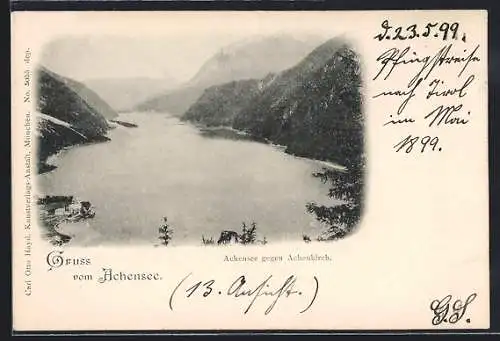 d. 23.5.99.
Pfingstreise
nach Tirol
im Mai
1899.
Carl Otto Hayd, Kunstverlags-Anstalt, München. No. 5055
Achensee gegen Achenkirch.
Gruss
vom Achensee.
(13. Ansicht.)
G.S.